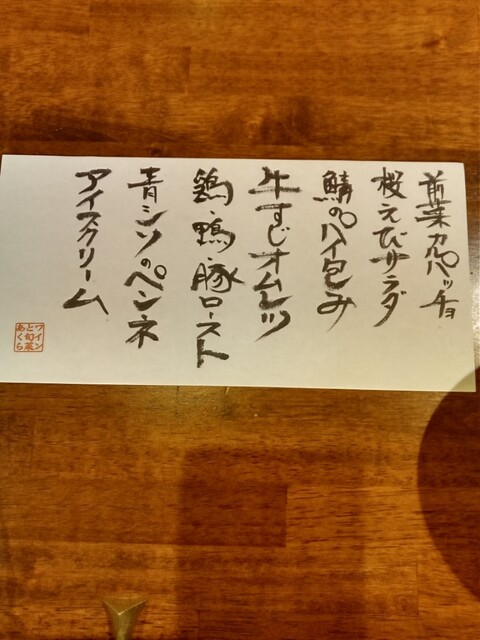 前菜カルパッチョ
桜えびサラダ
鯖のパイ包み
牛すじオムレツ
鶏・鴨・豚ロースト
青シソのペンネ
アイスクリーム
ワイン
と旬菜
あくら